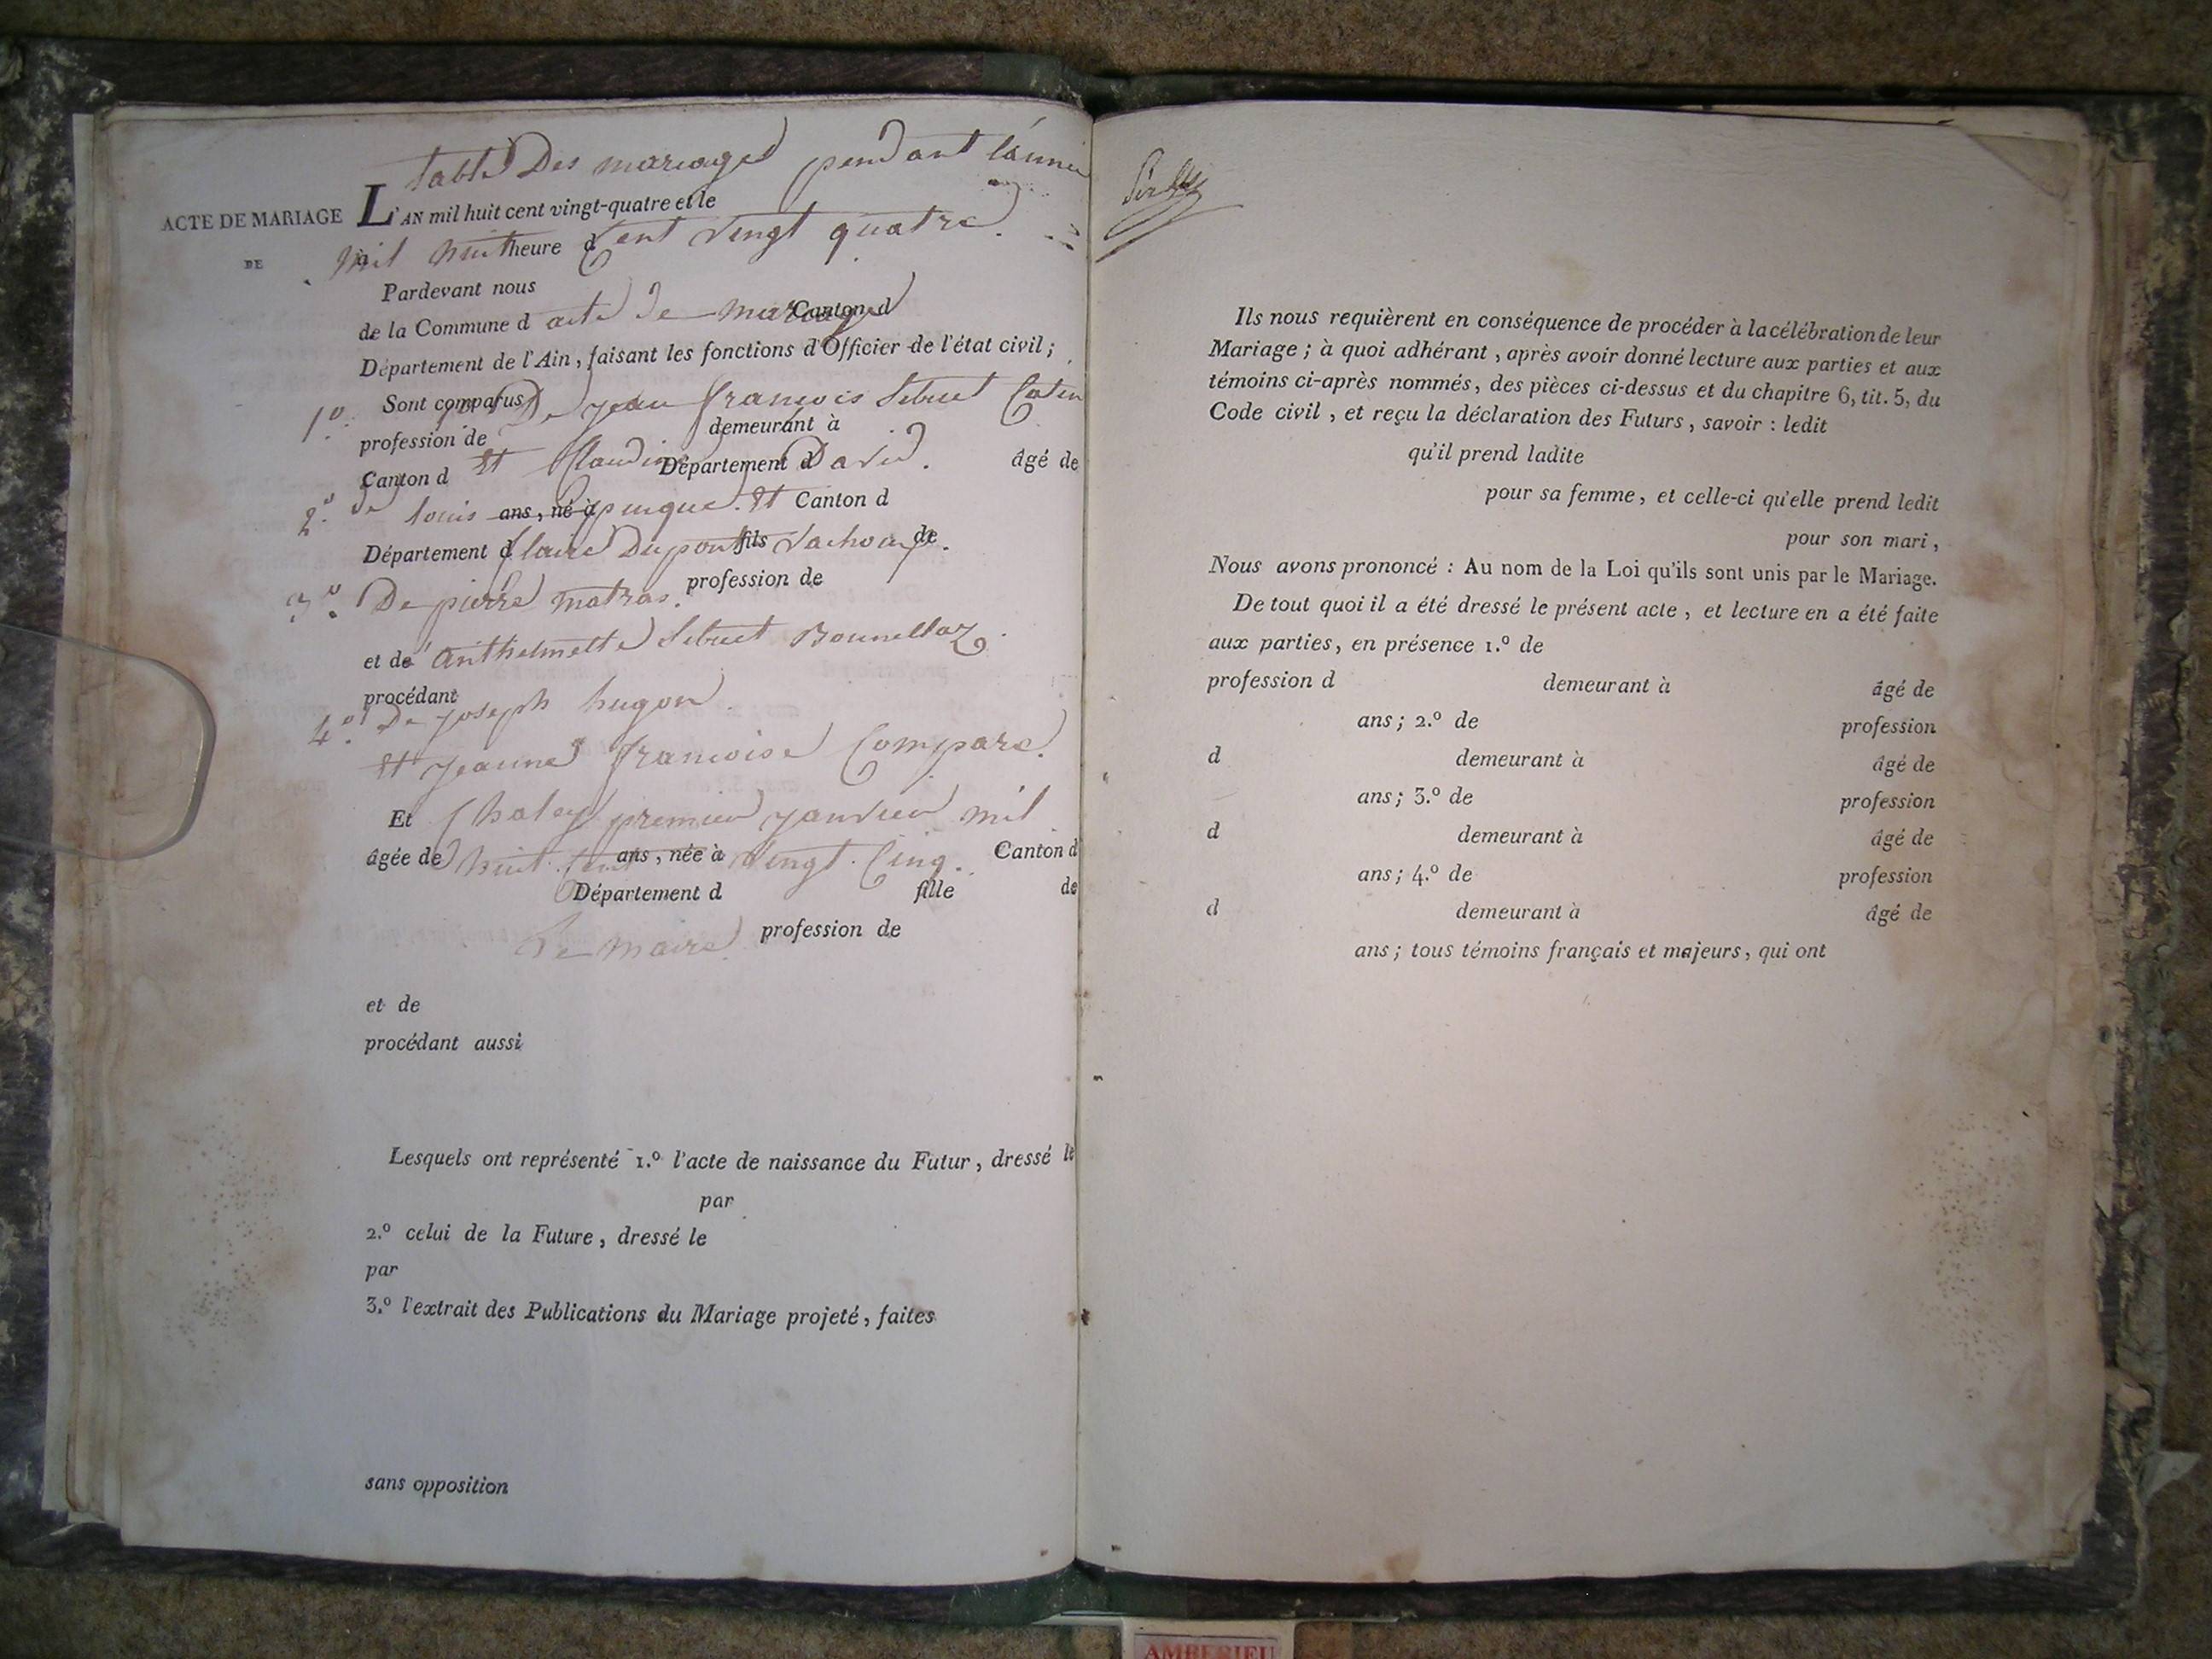 table Des mariages pendant l'année
ACTE DE MARIAGE
DE
L'AN mil huit cent vingt-quatre et le
mil huit Cent vingt quatre.
à heure d
Pardevant nous
de la Commune d Canton d
acte de mariage
Département de l'Ain, faisant les fonctions d'Officier de l'état civil;
Sont comparus
1º. De jean françois Catin
profession de demeurant à
et Claudine David.
Canton d Département d âgé de
2º. de louis et
ans, né à Canton d
Département d fils de
Claire Dupont
3º. De pierre matras.
profession de
et de anthelmette
procédant
4º. De joseph hugon
et jeanne françoise Compare.
Et
Chaley premier janvier mil
âgée de ans, née à Canton d
huit Cent vingt Cinq.
Département d fille de
Le maire
profession de
et de
procédant aussi
Lesquels ont représenté 1.º l'acte de naissance du Futur, dressé le
par
2.º celui de la Future, dressé le
par
3.º l'extrait des Publications du Mariage projeté, faites
sans opposition
Ils nous requièrent en conséquence de procéder à la célébration de leur
Mariage; à quoi adhérant, après avoir donné lecture aux parties et aux
témoins ci-après nommés, des pièces ci-dessus et du chapitre 6, tit. 5, du
Code civil, et reçu la déclaration des Futurs, savoir : ledit
qu'il prend ladite
pour sa femme, et celle-ci qu'elle prend ledit
pour son mari,
Nous avons prononcé : Au nom de la Loi qu'ils sont unis par le Mariage.
De tout quoi il a été dressé le présent acte, et lecture en a été faite
aux parties, en présence 1.º de
profession d demeurant à âgé de
ans; 2.º de profession
d demeurant à âgé de
ans; 3.º de profession
d demeurant à âgé de
ans; 4.º de profession
d demeurant à âgé de
ans; tous témoins français et majeurs, qui ont
AMBERIEU